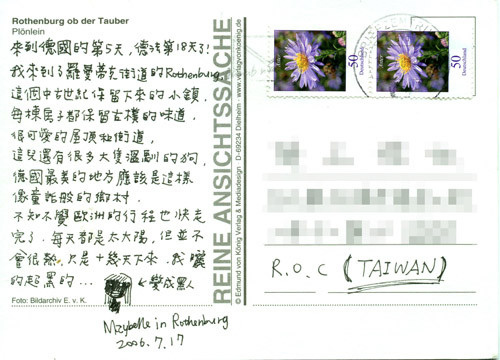 Rothenburg ob der Tauber
Plönlein
來到德國的第5天,德瑞第18天了!
我來到了羅曼蒂克街道的Rothenburg
這個中古世紀保留下來的小鎮,
每棟房子都保留古樸的味道,
很可愛的屋頂和街道,
這兒還有很多大隻溫馴的狗,
德國最美的地方應該是這樣
像童話般的鄉村.
不知不覺歐洲的行程也快走
完了.每天都是大太陽,但並不
會很熱.只是十幾天下來,我曬
的超黑的...
←變成黑人
Foto: Bildarchiv E. v. K.
Mzybelle in Rothenburg
2006.7.17
REINE ANSICHTSSACHE
© Edmund von König Verlag & Mediadesign · D-69234 Dielheim · www.verlagvonkoenig.de
50
Deutschland
50
Deutschland
R.O.C (TAIWAN)